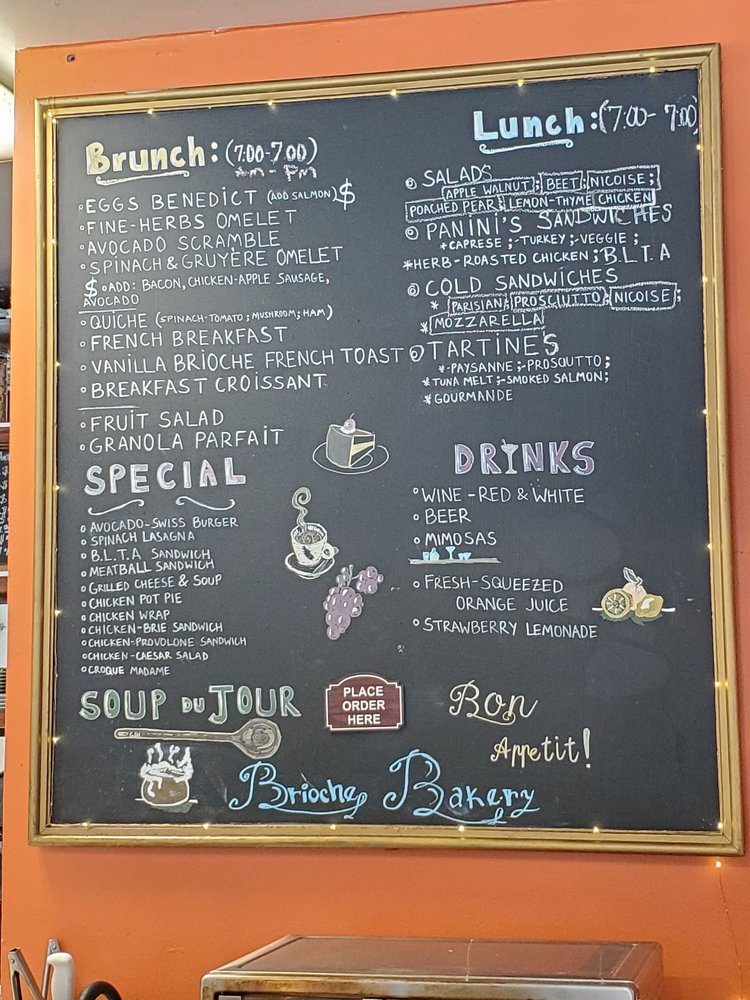 Brunch: (7:00-7:00)
AM - PM
EGGS BENEDICT (ADD SALMON) $
FINE-HERBS OMELET
AVOCADO SCRAMBLE
SPINACH & GRUYÈRE OMELET
$ ADD: BACON, CHICKEN-APPLE SAUSAGE,
AVOCADO
QUICHE (SPINACH-TOMATO; MUSHROOM; HAM)
FRENCH BREAKFAST
VANILLA BRIOCHE FRENCH TOAST
BREAKFAST CROISSANT
FRUIT SALAD
GRANOLA PARFAIT
SPECIAL
AVOCADO-SWISS BURGER
SPINACH LASAGNA
B.L.T.A SANDWICH
MEATBALL SANDWICH
GRILLED CHEESE & SOUP
CHICKEN POT PIE
CHICKEN WRAP
CHICKEN-BRIE SANDWICH
CHICKEN-PROVOLONE SANDWICH
CHICKEN-CAESAR SALAD
CROQUE MADAME
SOUP DU JOUR
Lunch: (7:00- 7:00)
SALADS
APPLE WALNUT; BEET; NICOISE;
POACHED PEAR; LEMON-THYME CHICKEN
PANINI'S SANDWICHES
*CAPRESE;-TURKEY;-VEGGIE;
*HERB-ROASTED CHICKEN; B.L.T.A
COLD SANDWICHES
* PARISIAN; PROSCIUTTO; NICOISE;
* MOZZARELLA
TARTINES
*-PAYSANNE;-PROSCIUTTO;
*TUNA MELT;-SMOKED SALMON;
*GOURMANDE
DRINKS
WINE-RED & WHITE
BEER
MIMOSAS
FRESH-SQUEEZED
ORANGE JUICE
STRAWBERRY LEMONADE
PLACE
ORDER
HERE
Bon
Appetit!
Brioche Bakery